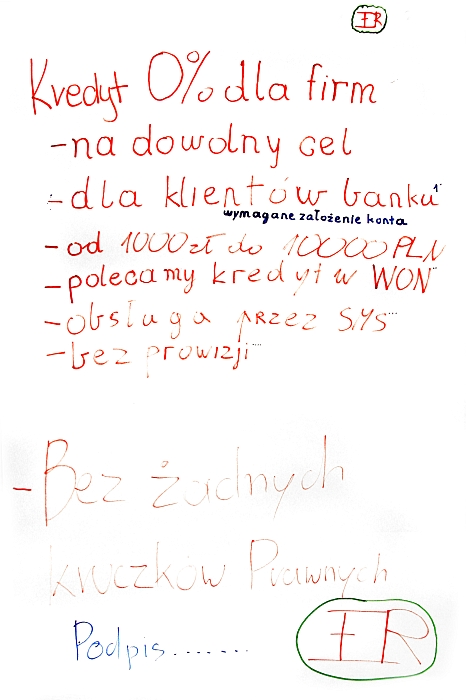 ER
Kredyt 0% dla firm
- na dowolny cel
- dla klientów banku¹
wymagane założenie konta
- od 1000zł do 10000PLN
- polecamy kredyt w WON"
- obsługa przez SYS'''
- bez prowizji''''
- Bez żadnych
kruczków Prawnych
Podpis.......
ER